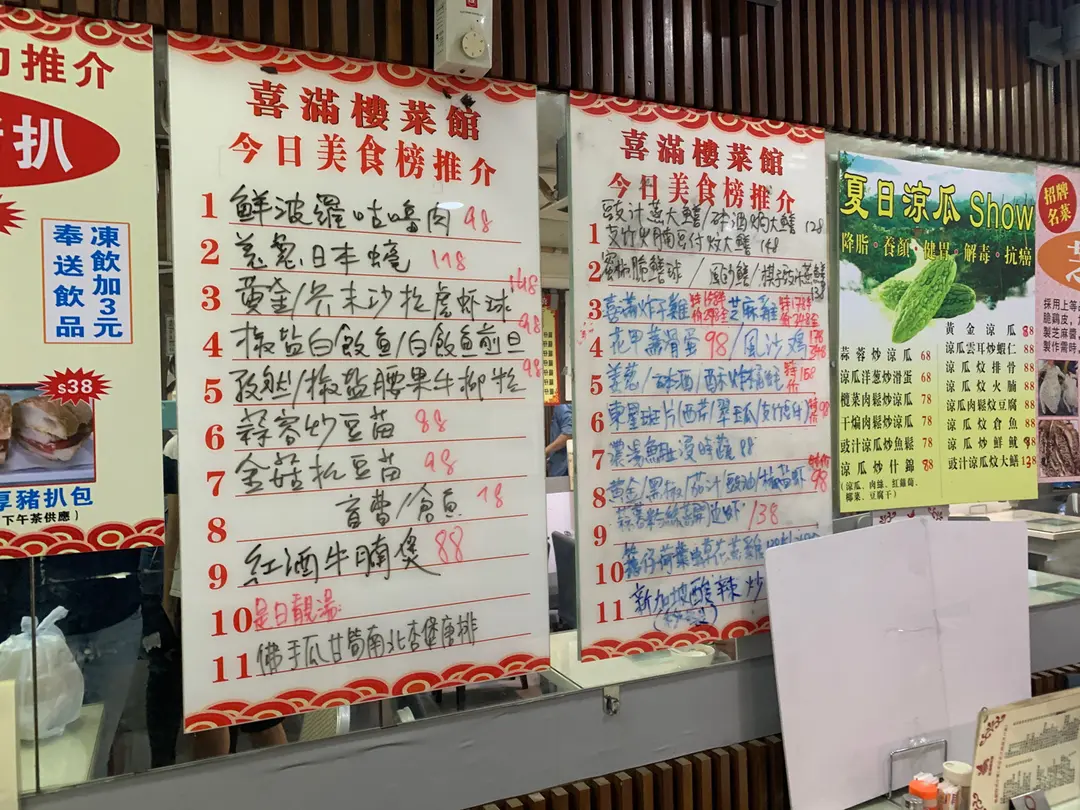 推介
扒
凍飲加3元
奉送飲品
$38
豬扒包
下午茶供應)
喜滿樓菜館
今日美食榜推介
1 鮮波羅咕嚕肉 98
2 姜葱日本蠔 118
3 黄金/芥末沙拉虎虾球 148
4 椒盐白飯魚/白飯魚煎旦 98
5 孜然/椒盐腰果牛柳粒 98
6 蒜蓉炒豆苗 88
7 金菇扒豆苗 98
8 /倉魚 78
9 紅酒牛腩煲 88
10 是日靚湯
11 佛手瓜甘筍南北杏煲唐排
喜滿樓菜館
今日美食榜推介
豉汁蒸大鱔/ 大鱔 128
1 支竹火腩 炆大鱔 148
2 脆鱔球/風沙鱔/ 蒸鱔 128
3 喜滿炸子雞 芝麻雞
4 花甲蒸滑蛋 98/風沙鸡
5 姜葱/ 酒/酥炸 特价 168
6 東星斑片(西芹/翠玉瓜/ 98
7 濃湯魚肚浸時蔬 88
8 黄金/黑椒/茄汁/豉油/椒盐虾 98
9 蒜蓉粉絲 虾 138
10 笼仔荷葉虫草花蒸雞
11 新加坡酸辣炒
夏日涼瓜 Show
降脂。養顏。健胃。解毒。抗癌
蒜蓉炒涼瓜 68
涼瓜洋葱炒滑蛋 68
欖菜肉鬆炒涼瓜 78
干煸肉鬆炒涼瓜 78
豉汁涼瓜炒魚鬆 78
涼瓜炒什錦 78
(涼瓜、肉絲、紅蘿蔔、
椰菜、豆腐干)
黃金涼瓜 88
涼瓜雲耳炒蝦仁 88
涼瓜炆排骨 88
涼瓜炆火腩 88
涼瓜肉鬆炆豆腐 88
涼瓜炆倉魚 88
涼瓜炒鮮魷 98
豉汁涼瓜炆大鱔 128
招牌名菜
採用上等
脆鷄皮，
製芝麻醬
製作需時